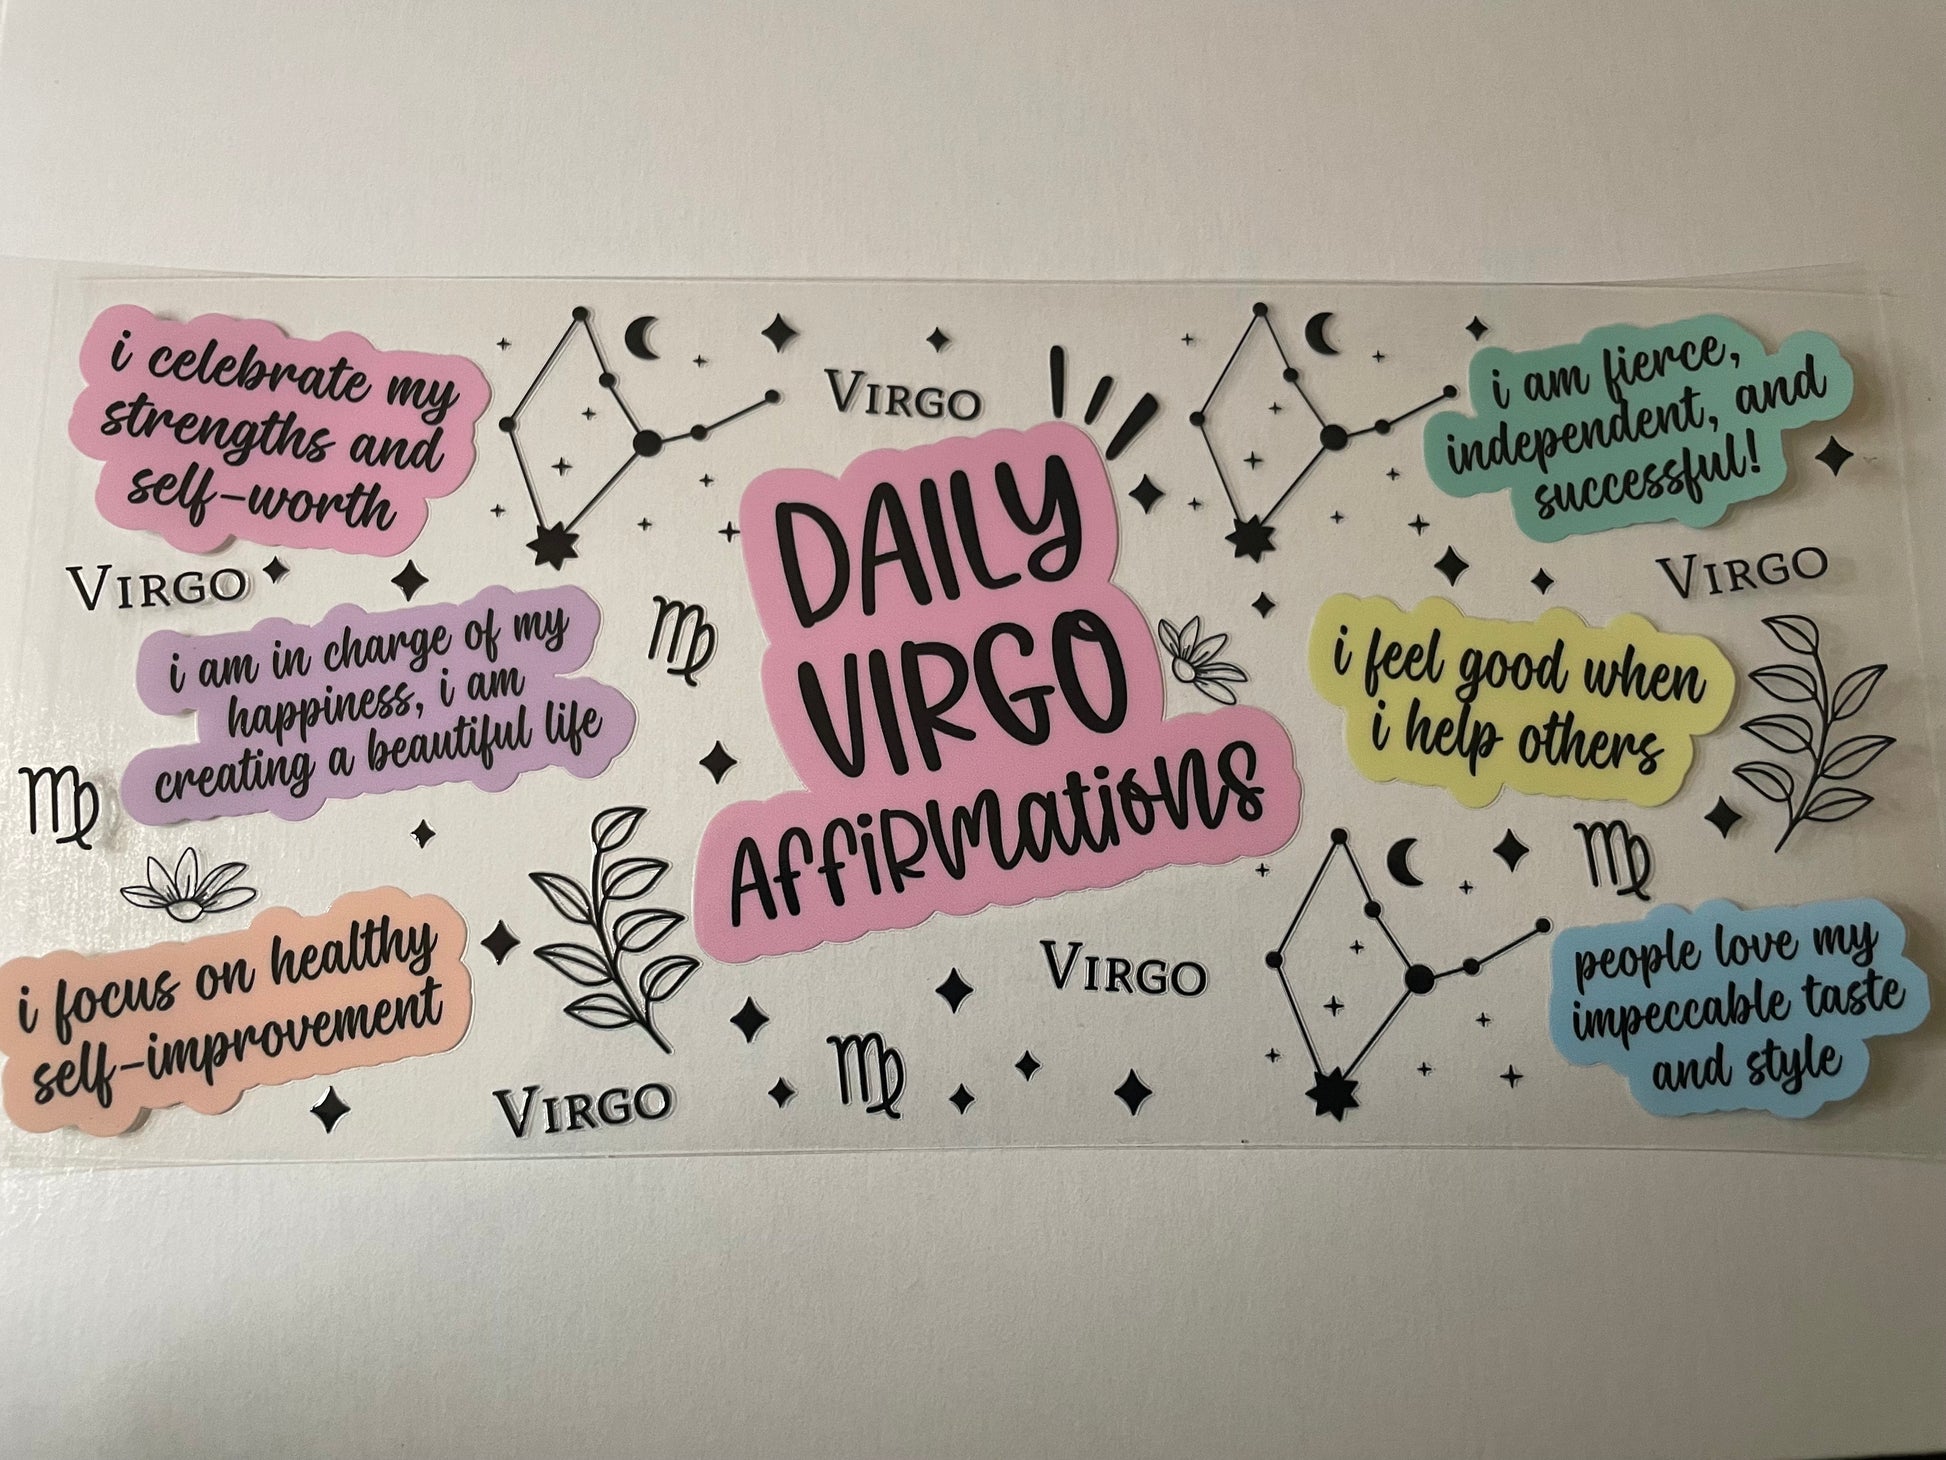 i celebrate my
strengths and
self-worth
VIRGO
i am in charge of my
happiness, i am
creating a beautiful life
i focus on healthy
self-improvement
VIRGO
VIRGO
DAILY
VIRGO
AFFiRMations
VIRGO
i am fierce,
independent, and
successful!
VIRGO
i feel good when
i help others
people love my
impeccable taste
and style